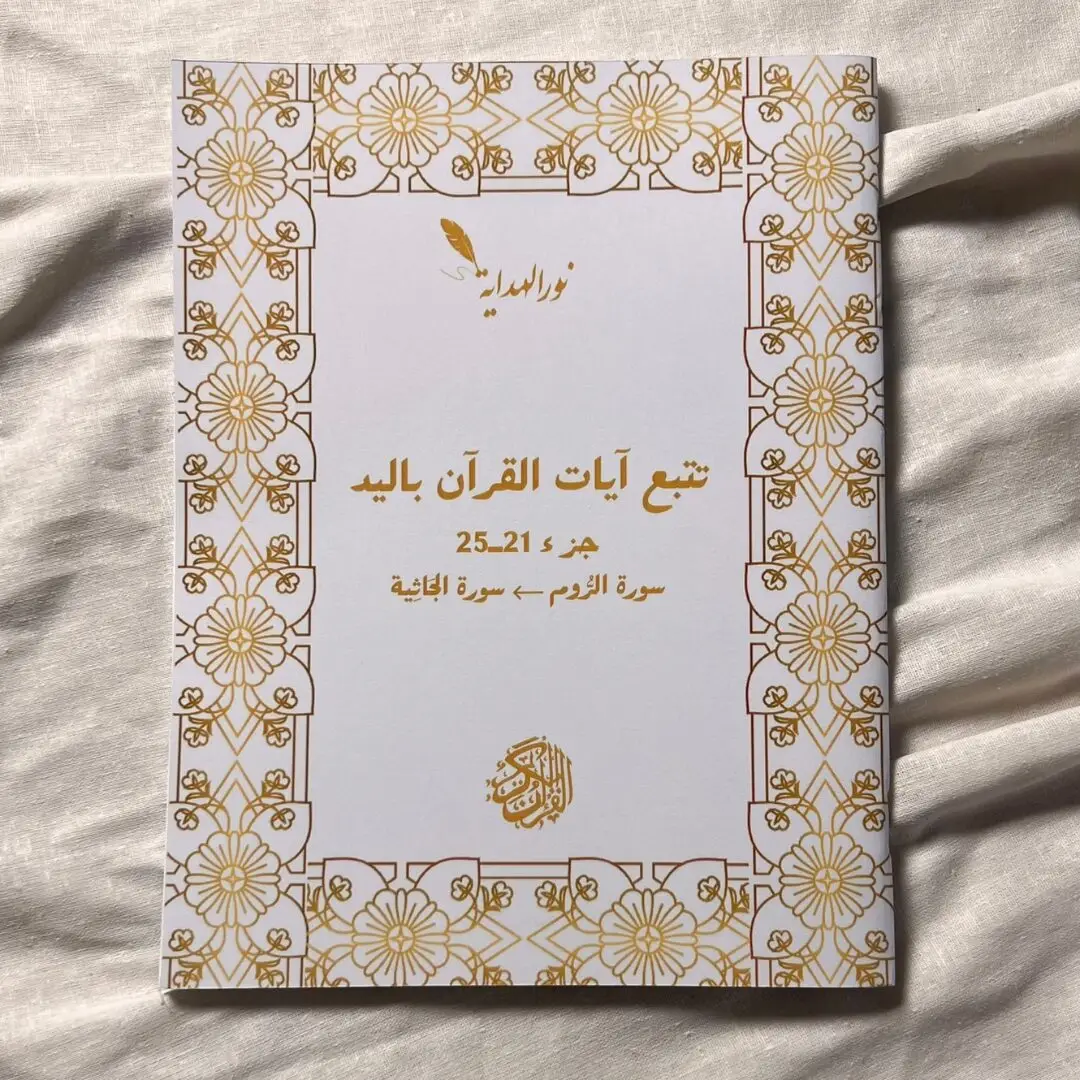 نور الهداية
تتبع آيات القرآن باليد
جزء 21ـ25
سورة الرُّوم ← سورة الجَاثِية
القرآن الكريم